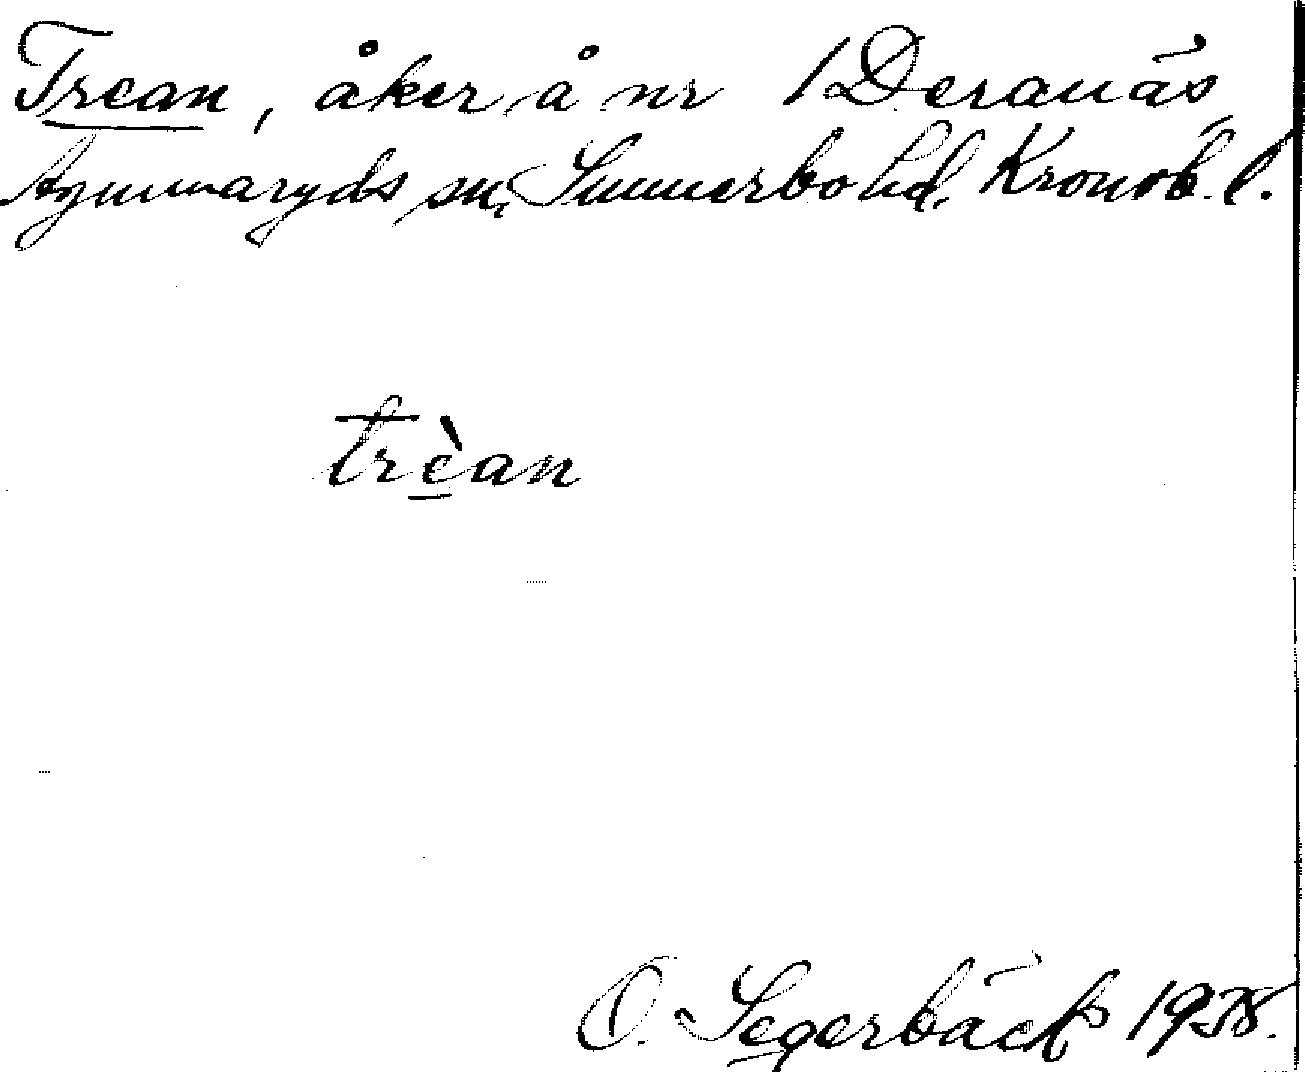 Trean, åker å nr 1 Deranäs
Agunnaryds sn, Sunnerbo hd, Kronob. l.
trèan
O. Segerbäck 1938.